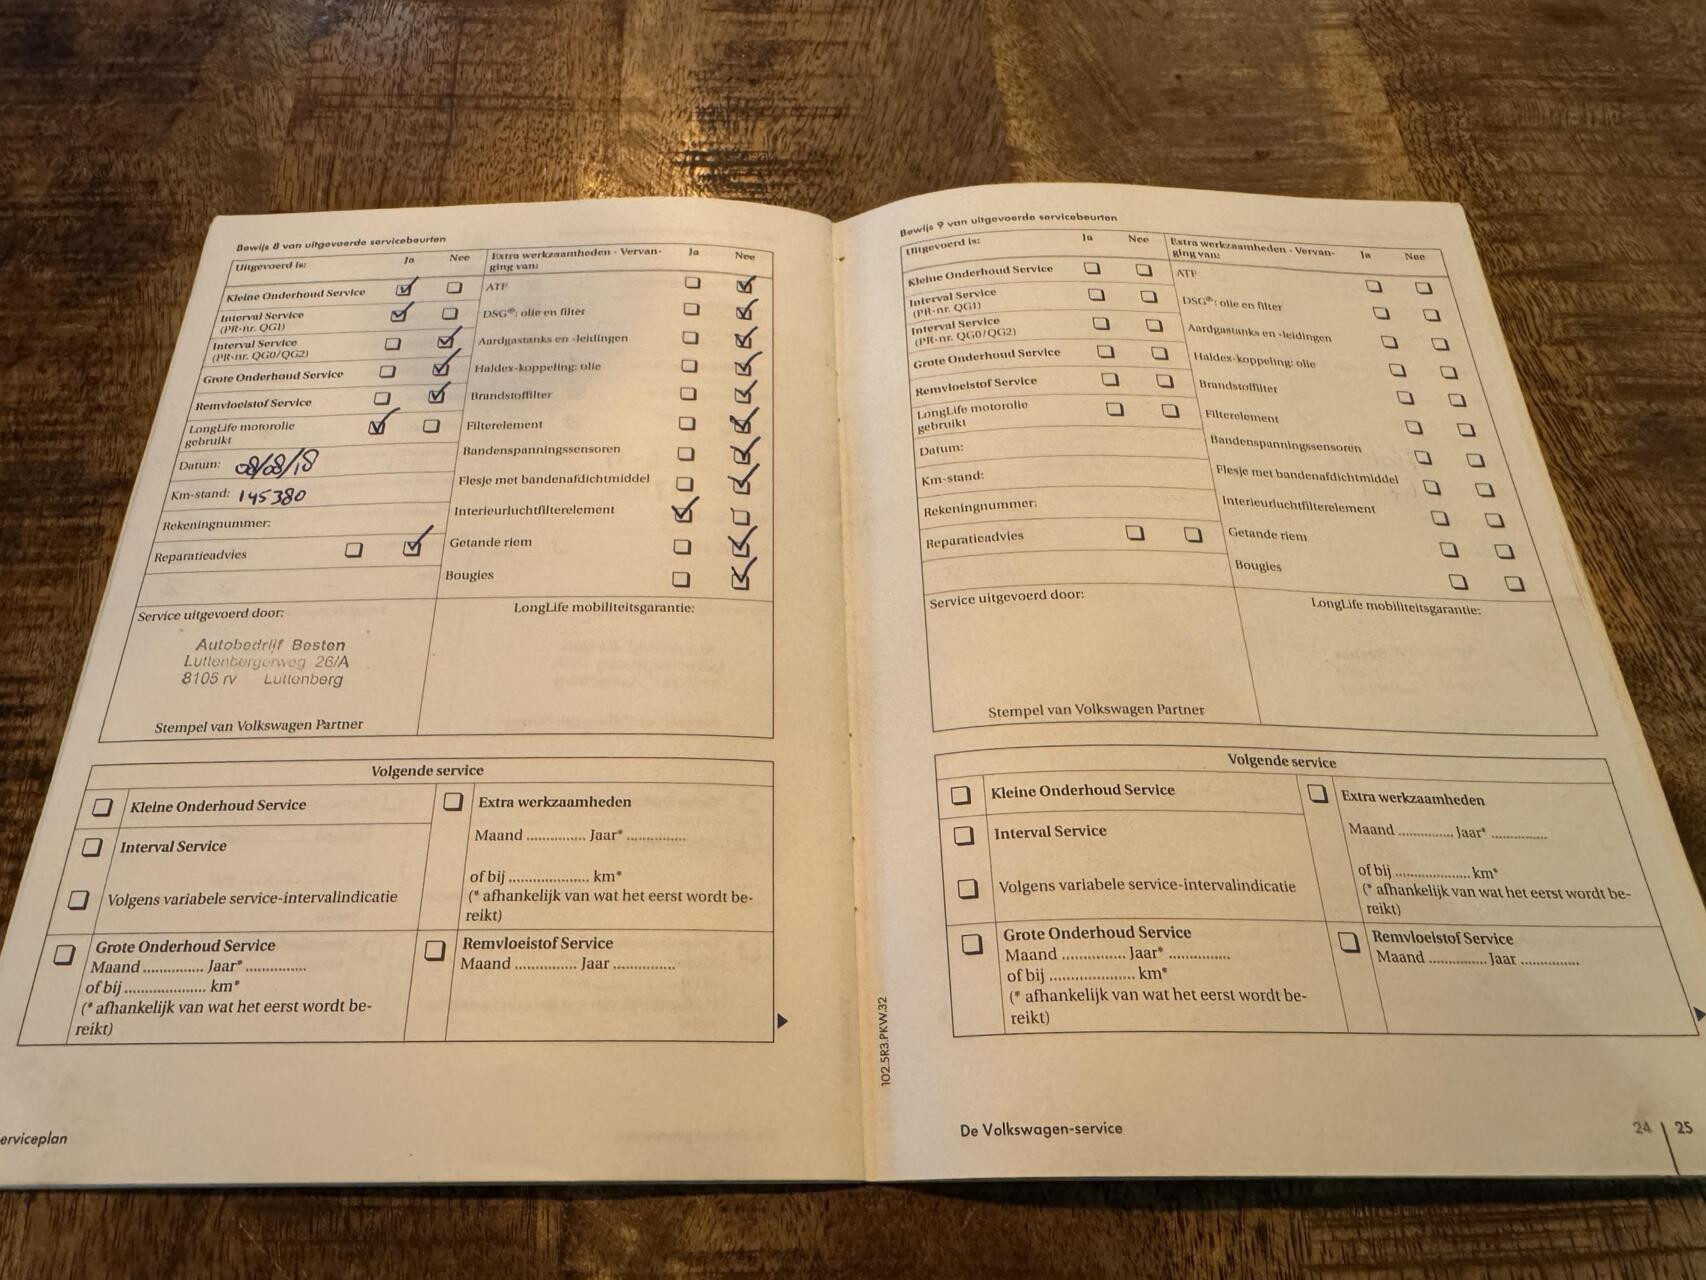 Bewijs 8 van uitgevoerde servicebeurten
Uitgevoerd is: Ja Nee
Kleine Onderhoud Service
Interval Service
(PR-nr. QG1)
Interval Service
(PR-nr. QG0/QG2)
Grote Onderhoud Service
Remvloeistof Service
LongLife motorolie
gebruikt
Datum: 08/08/18
Km-stand: 145380
Rekeningnummer:
Reparatieadvies
Extra werkzaamheden - Vervan-
ging van: Ja Nee
ATF
DSG®: olie en filter
Aardgastanks en -leidingen
Haldex-koppeling: olie
Brandstoffilter
Filterelement
Bandenspanningssensoren
Flesje met bandenafdichtmiddel
Interieurluchtfilterelement
Getande riem
Bougies
Service uitgevoerd door:
Autobedrijf Besten
Luttenbergerweg 26/A
8105 rv Luttenberg
Stempel van Volkswagen Partner
LongLife mobiliteitsgarantie:
Volgende service
Kleine Onderhoud Service
Interval Service
Volgens variabele service-intervalindicatie
Grote Onderhoud Service
Maand .............. Jaar* ..............
of bij .................... km*
(* afhankelijk van wat het eerst wordt be-
reikt)
Extra werkzaamheden
Maand .............. Jaar* ..............
of bij .................... km*
(* afhankelijk van wat het eerst wordt be-
reikt)
Remvloeistof Service
Maand .............. Jaar ..............
erviceplan
Bewijs 9 van uitgevoerde servicebeurten
Uitgevoerd is: Ja Nee
Kleine Onderhoud Service
Interval Service
(PR-nr. QG1)
Interval Service
(PR-nr. QG0/QG2)
Grote Onderhoud Service
Remvloeistof Service
LongLife motorolie
gebruikt
Datum:
Km-stand:
Rekeningnummer:
Reparatieadvies
Extra werkzaamheden - Vervan-
ging van: Ja Nee
ATF
DSG®: olie en filter
Aardgastanks en -leidingen
Haldex-koppeling: olie
Brandstoffilter
Filterelement
Bandenspanningssensoren
Flesje met bandenafdichtmiddel
Interieurluchtfilterelement
Getande riem
Bougies
Service uitgevoerd door:
Stempel van Volkswagen Partner
LongLife mobiliteitsgarantie:
Volgende service
Kleine Onderhoud Service
Interval Service
Volgens variabele service-intervalindicatie
Grote Onderhoud Service
Maand .............. Jaar* ..............
of bij .................... km*
(* afhankelijk van wat het eerst wordt be-
reikt)
Extra werkzaamheden
Maand .............. Jaar* ..............
of bij .................... km*
(* afhankelijk van wat het eerst wordt be-
reikt)
Remvloeistof Service
Maand .............. Jaar ..............
102.5R3.PKW.32
De Volkswagen-service
24 25